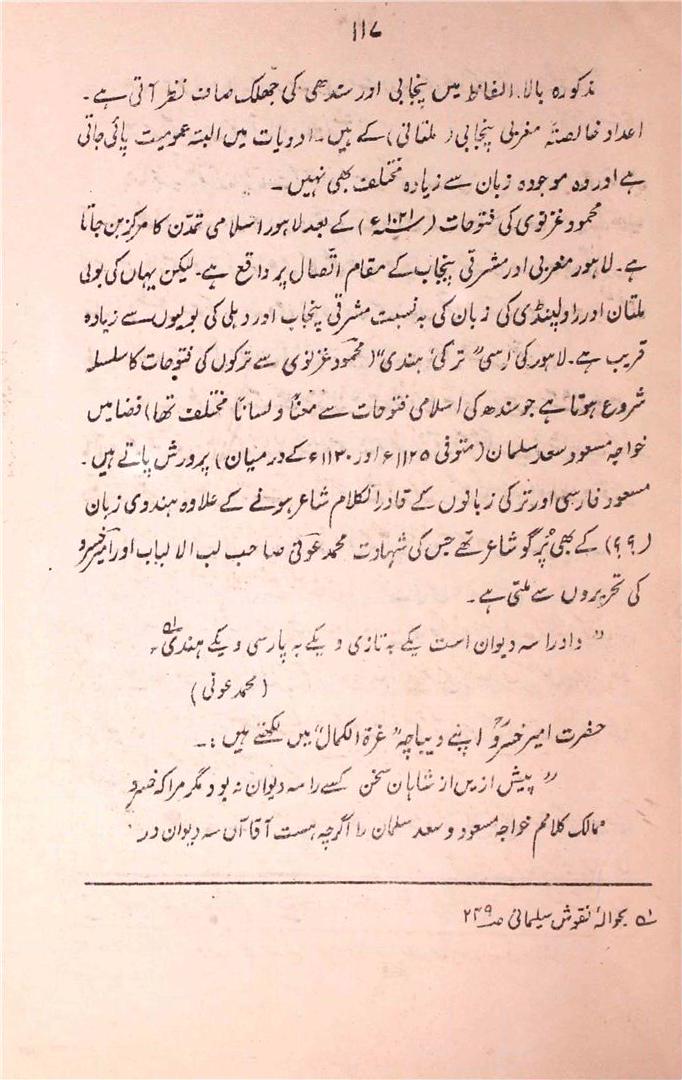 ۱۱۷
مذکورہ بالا۔ الفاظ میں پنجابی اور سندھی کی جھلک صاف نظر آتی ہے۔
اعداد خالصتہً مغربی پنجابی (ملتانی) کے ہیں۔ ادویات میں البتہ عمومیت پائی جاتی
ہے اور وہ موجودہ زبان سے زیادہ مختلف بھی نہیں۔
محمود غزنوی کی فتوحات (سنہ ۱۰۲۱ء) کے بعد لاہور اسلامی تمدّن کا مرکز بن جاتا
ہے۔ لاہور مغربی اور مشرقی پنجاب کے مقام اتّصال پر واقع ہے۔ لیکن یہاں کی بولی
ملتان اور راولپنڈی کی زبان کی بہ نسبت مشرقی پنجاب اور دہلی کی بولیوں سے زیادہ
قریب ہے۔ لاہور کی اسی "ترکیٔ ہندی" (محمود غزنوی سے ترکوں کی فتوحات کا سلسلہ
شروع ہوتا ہے جو سندھ کی اسلامی فتوحات سے معناً و لساناً مختلف تھا) فضا میں
خواجہ مسعود سعد سلمان (متوفی ۱۱۲۵ء اور ۱۱۳۰ء کے درمیان) پرورش پاتے ہیں۔
مسعود فارسی اور ترکی زبانوں کے قادر الکلام شاعر ہونے کے علاوہ ہندوی زبان
(؟؟) کے بھی پُرگو شاعر تھے جس کی شہادت محمد عوفی صاحب لب الالباب اور امیر خسرو
کی تحریروں سے ملتی ہے۔
"دادرا سہ دیوان است یکے بہ تازی و یکے بہ پارسی و یکے ہندی۱؎"
(محمد عوفی)
حضرت امیر خسروؒ اپنے دیباچہ "غرۃ الکمال" میں لکھتے ہیں:۔
"پیش ازیں از شاہان سخن کسے را سہ دیوان نہ بود مگر مرا کہ خسرو
ممالک کلامم خواجہ مسعود و سعد سلمان را اگرچہ ہست آقا آں سہ دیوان در
۱؎ بحوالۂ نقوش سیلمانی صـ۲۴۹